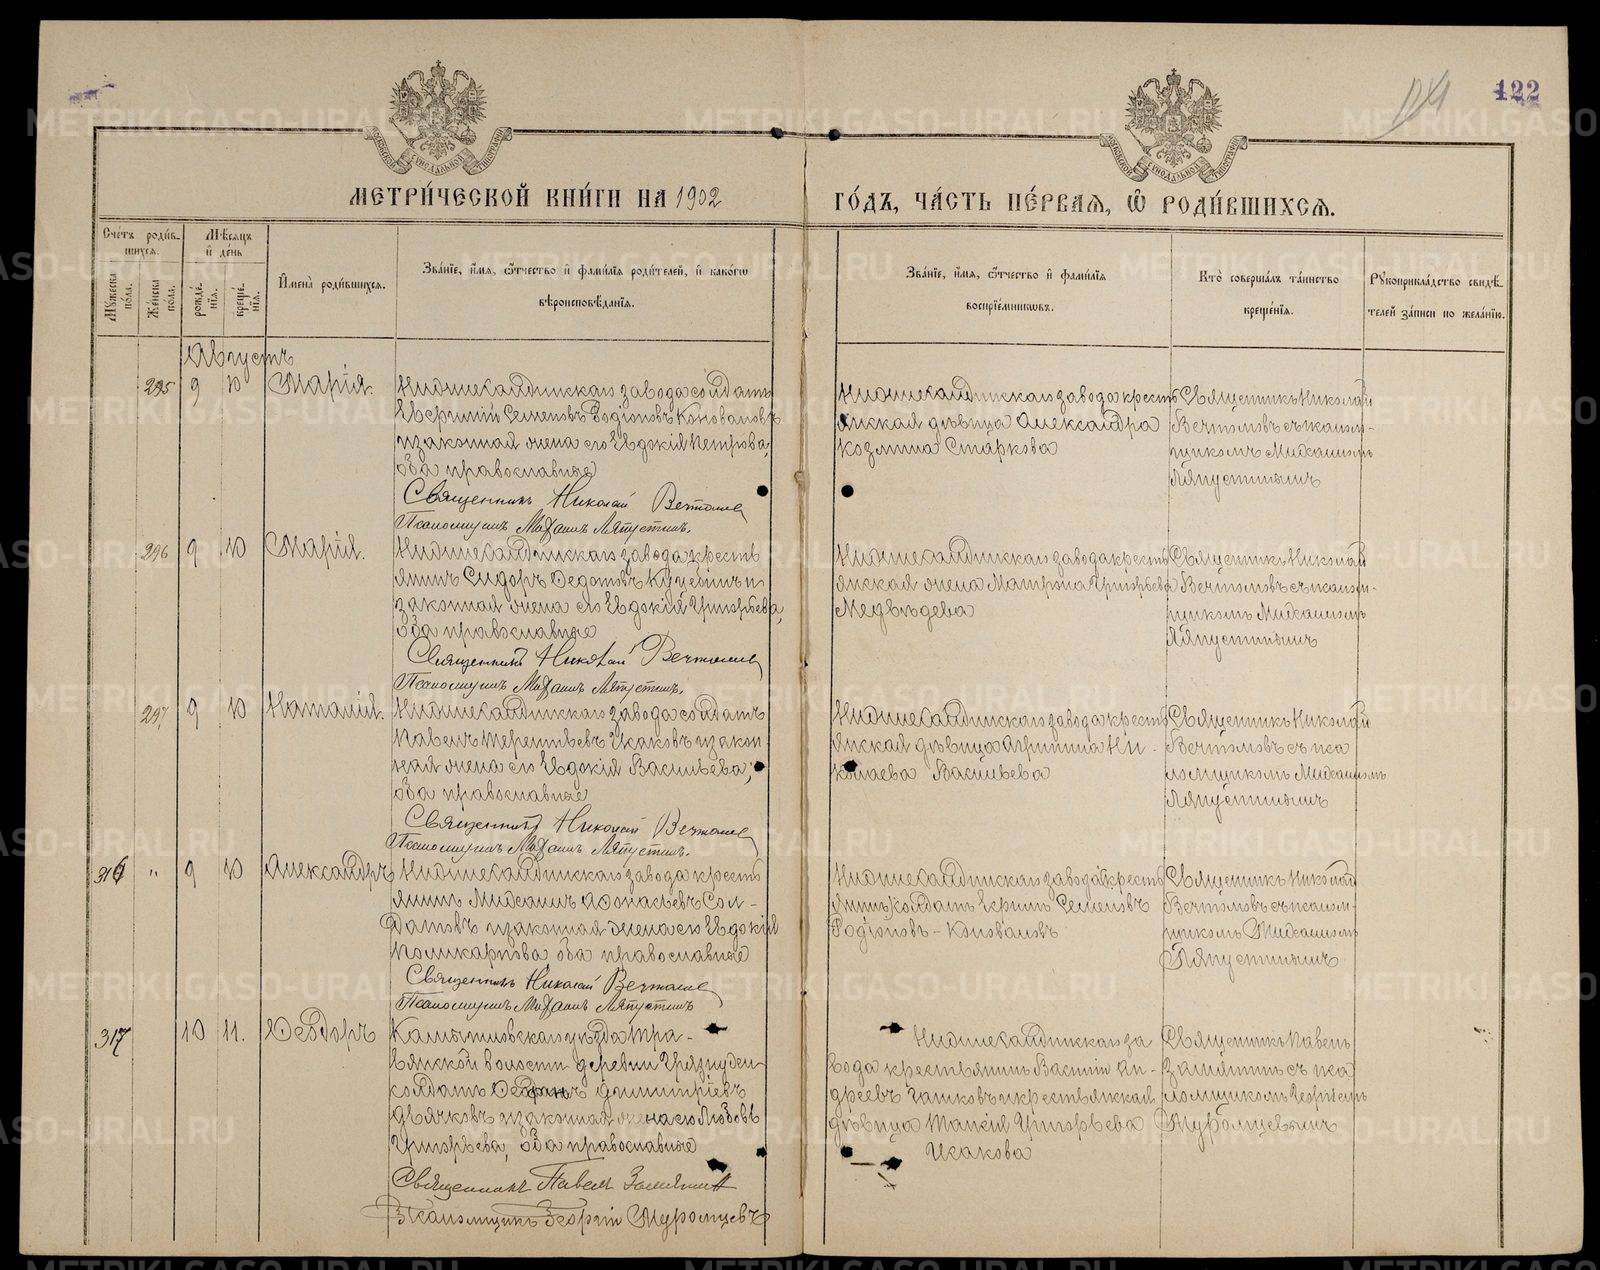 122
МЕТРИ́ЧЕСКОЙ КНИ́ГИ НА 1902
ГО́ДЪ, ЧА́СТЬ ПЕ́РВАЯ, Ѽ РОДИ́ВШИХСЯ.
Сче́тъ роди́в-
шихся.
Мѣ́сяцъ
и҆ де́нь
Му́жеска по́ла.
Же́нска пола.
рожде́-
нїя.
креще́-
нїя.
И҆мена̀ роди́вшихся.
Зва́нїе, и҆́мя, ѻ҆́тчество и҆ фами́лїя роди́телей, и҆ како́гѡ
вѣроисповѣ́данїя.
Зва́нїе, и҆́мя, ѻ҆́тчество и҆ фами́лїя
воспрїе́мникѡвъ.
Кто̀ соверша́лъ та́инство
креще́нїя.
Рꙋкоприкла́дство свидѣ́-
телей за́писи по жела́нїю.
Августъ
295 9 10 Марія.
Нижнесалдинскаго завода солдатъ
Семеновъ Родіоновъ Коноваловъ
и законная жена его Евдокія Петрова,
оба православные
Священникъ Николай
Псаломщикъ Михаилъ Ляпустинъ.
Нижнесалдинскаго завода кресть
янская дѣвица Александра
Козмина Старкова
Священникъ Николай
Михаиломъ
Ляпустинымъ
296 9 10 Марія.
Нижнесалдинскаго завода кресть
янинъ Сидоръ Федотовъ и
законная жена его Евдокія Григорьева,
оба православные
Священникъ Николай
Псаломщикъ Михаилъ Ляпустинъ.
Нижнесалдинскаго завода кресть
янская жена Матрона Григорьева
Медвѣдева
Священникъ Николай
щикомъ Михаиломъ
Ляпустинымъ
297 9 10 Наталія.
Нижнесалдинскаго завода солдатъ
Павелъ Терентьевъ Исаковъ и закон
ная жена его Евдокія Васильева,
оба православные
Священникъ Николай
Псаломщикъ Михаилъ Ляпустинъ.
Нижнесалдинскаго завода кресть
янская дѣвица Агрипина Ни-
колаева Васильева
Священникъ Николай
съ пса
ломщикомъ Михаиломъ
Ляпустинымъ
316 " 9 10 Александръ
Нижнесалдинскаго завода кресть
янинъ Михаилъ Афонасьевъ Сол-
датовъ и законная жена его Евдокія
Поликарпова оба православные
Священникъ Николай
Псаломщикъ Михаилъ Ляпустинъ
Нижнесалдинскаго завода кресть
янинъ солдатъ Семеновъ
Родіоновъ - Коноваловъ
Священникъ Николай
съ псалом-
щикомъ Михаиломъ
Ляпустинымъ
317 10 11. Ѳеодоръ
Камышловскаго уѣзда Тра-
вянской волости деревни
солдатъ Димитріевъ
Дьячковъ и законная жена его Любовь
Григорьева, оба православные
Священникъ Павелъ
Псаломщикъ Георгій Муромцевъ
Нижнесалдинскаго за
вода крестьянинъ Василій Ан-
дреевъ и крестьянская
дѣвица Таисія Григорьева
Исакова
Священникъ Павелъ
съ пса
ломщикомъ Георгіемъ
Муромцевымъ